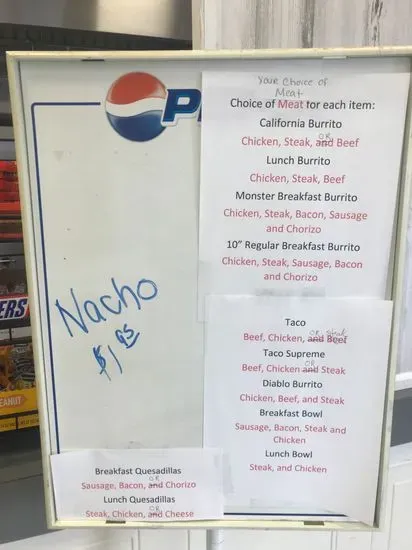 P
Your Choice of
Meat
Choice of Meat for each item:
California Burrito
OR
Chicken, Steak, and Beef
Lunch Burrito
Chicken, Steak, Beef
Monster Breakfast Burrito
Chicken, Steak, Bacon, Sausage
and Chorizo
10” Regular Breakfast Burrito
Chicken, Steak, Sausage, Bacon
and Chorizo
Nacho
$1.95
ERS
EANUT
Taco
OR Steak
Beef, Chicken, and Beef
Taco Supreme
OR
Beef, Chicken and Steak
Diablo Burrito
Chicken, Beef, and Steak
Breakfast Bowl
Sausage, Bacon, Steak and
Chicken
Lunch Bowl
Steak, and Chicken
Breakfast Quesadillas
OR
Sausage, Bacon, and Chorizo
Lunch Quesadillas
OR
Steak, Chicken, and Cheese